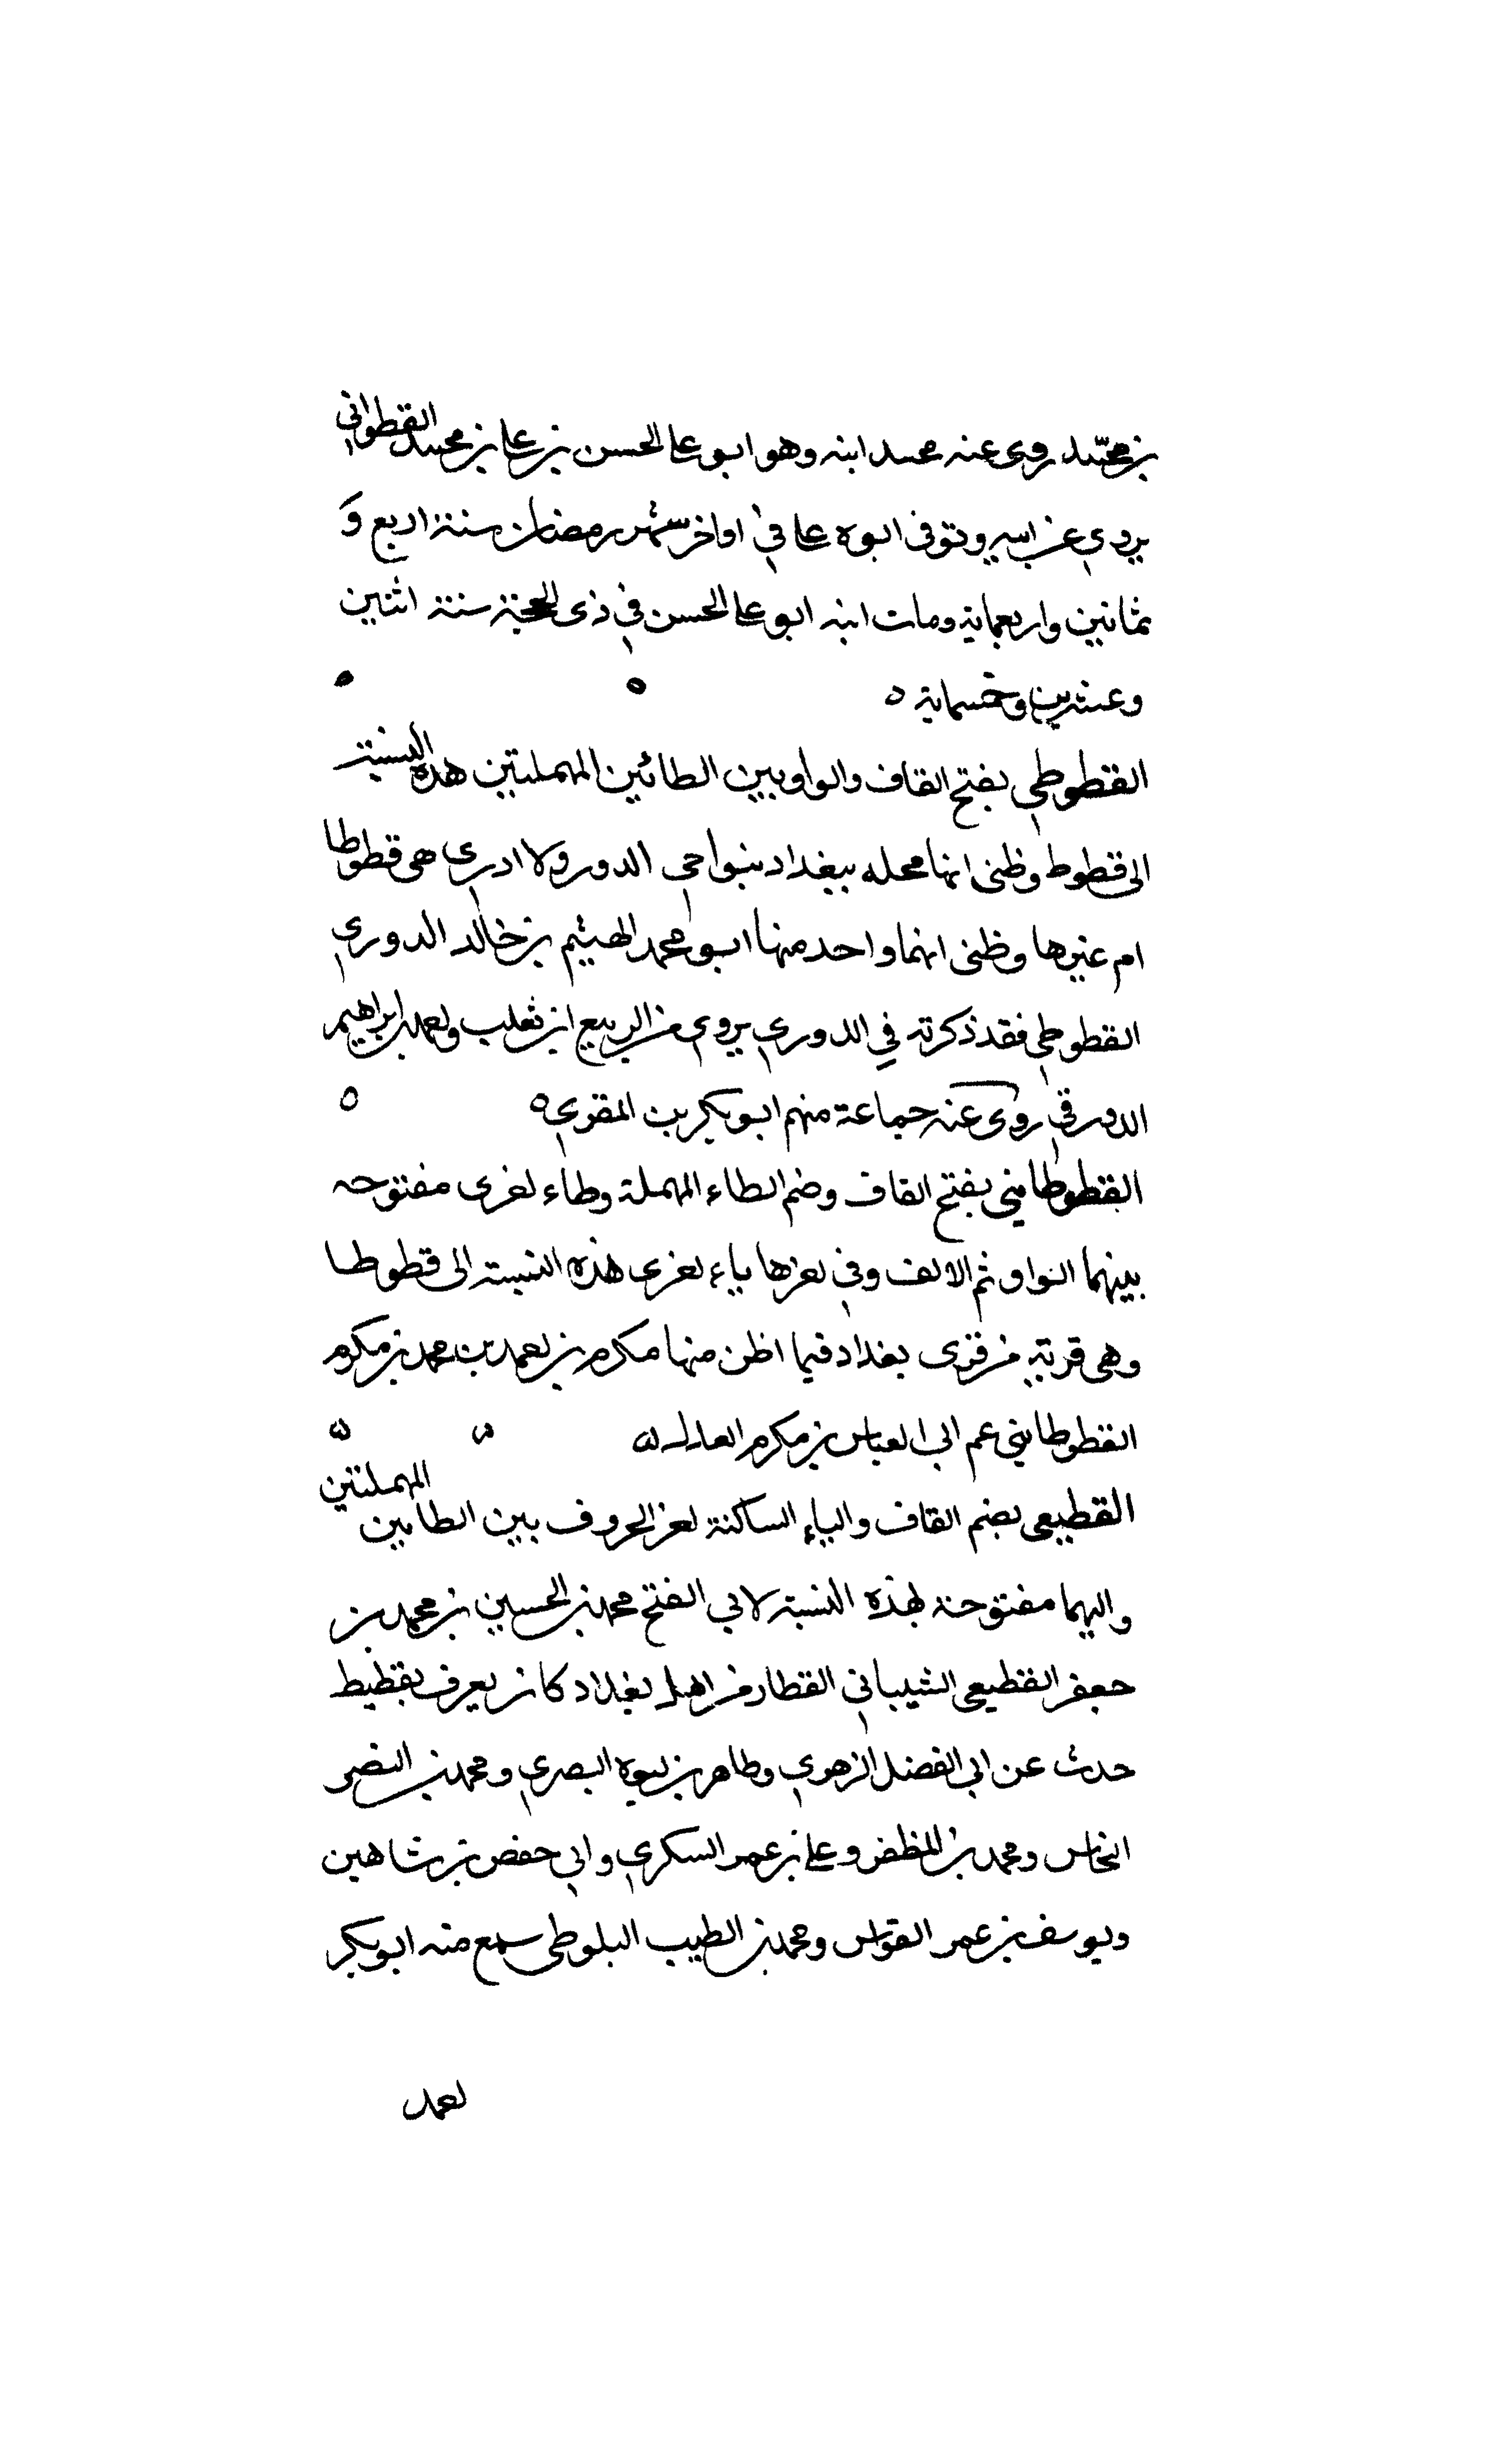 بن محمد روى عنه محمد ابنه وهو ابو على الحسن بن على بن محمد القطوانى
يروي عن ابيه وتوفى ابوه على في اواخر شهر رمضان سنة اربع و
ثمانين واربعماية ومات ابنه ابو على الحسن في ذى الحجة سنة اثنين
وعشرين وخمسماية ه
القطوطي بفتح القاف والواو بين الطائين المهملتين هذه النسبة
الى قطوط وظنى انها محله ببغداد بنواحي الدور ولا ادري هى قطوطا
ام غيرها وظنى انهما واحد منها ابو محمد الهيثم بن خالد الدوري
القطوطي فقد ذكرته في الدوري يروي عن الربيع ابن ثعلب واحمد ابراهيم
الدورقي روى عنه جماعة منهم ابو بكر بن المقري ه
القطوطايني بفتح القاف وضم الطاء المهملة وطاء اخرى مفتوحه
بينهما الواو ثم الالف وفي اخرها ياء اخرى هذه النسبة الى قطوطا
وهى قرية من قرى بغداد فيما اظن منها مكرم بن احمد بن محمد بن مكرم
القطوطايني عم ابي العباس بن مكرم العادل ه
القطيعى بضم القاف والياء الساكنة اخر الحروف بين الطايين المهملتين
واليهما مفتوحة لهذه النسبة لابي الفتح محمد بن الحسين بن محمد بن
جعفر القطيعى الشيباني القطار من اهل بغداد كان يعرف بقطيط
حدث عن ابي الفضل الزهري وطاهر بن البصري ومحمد بن النضر
النخاس ومحمد بن المظفر وعلى بن عمر السكري وابي حفص بن شاهين
ويوسف بن عمر القواس ومحمد بن الطيب البلوطي سمع منه ابو بكر
احمد